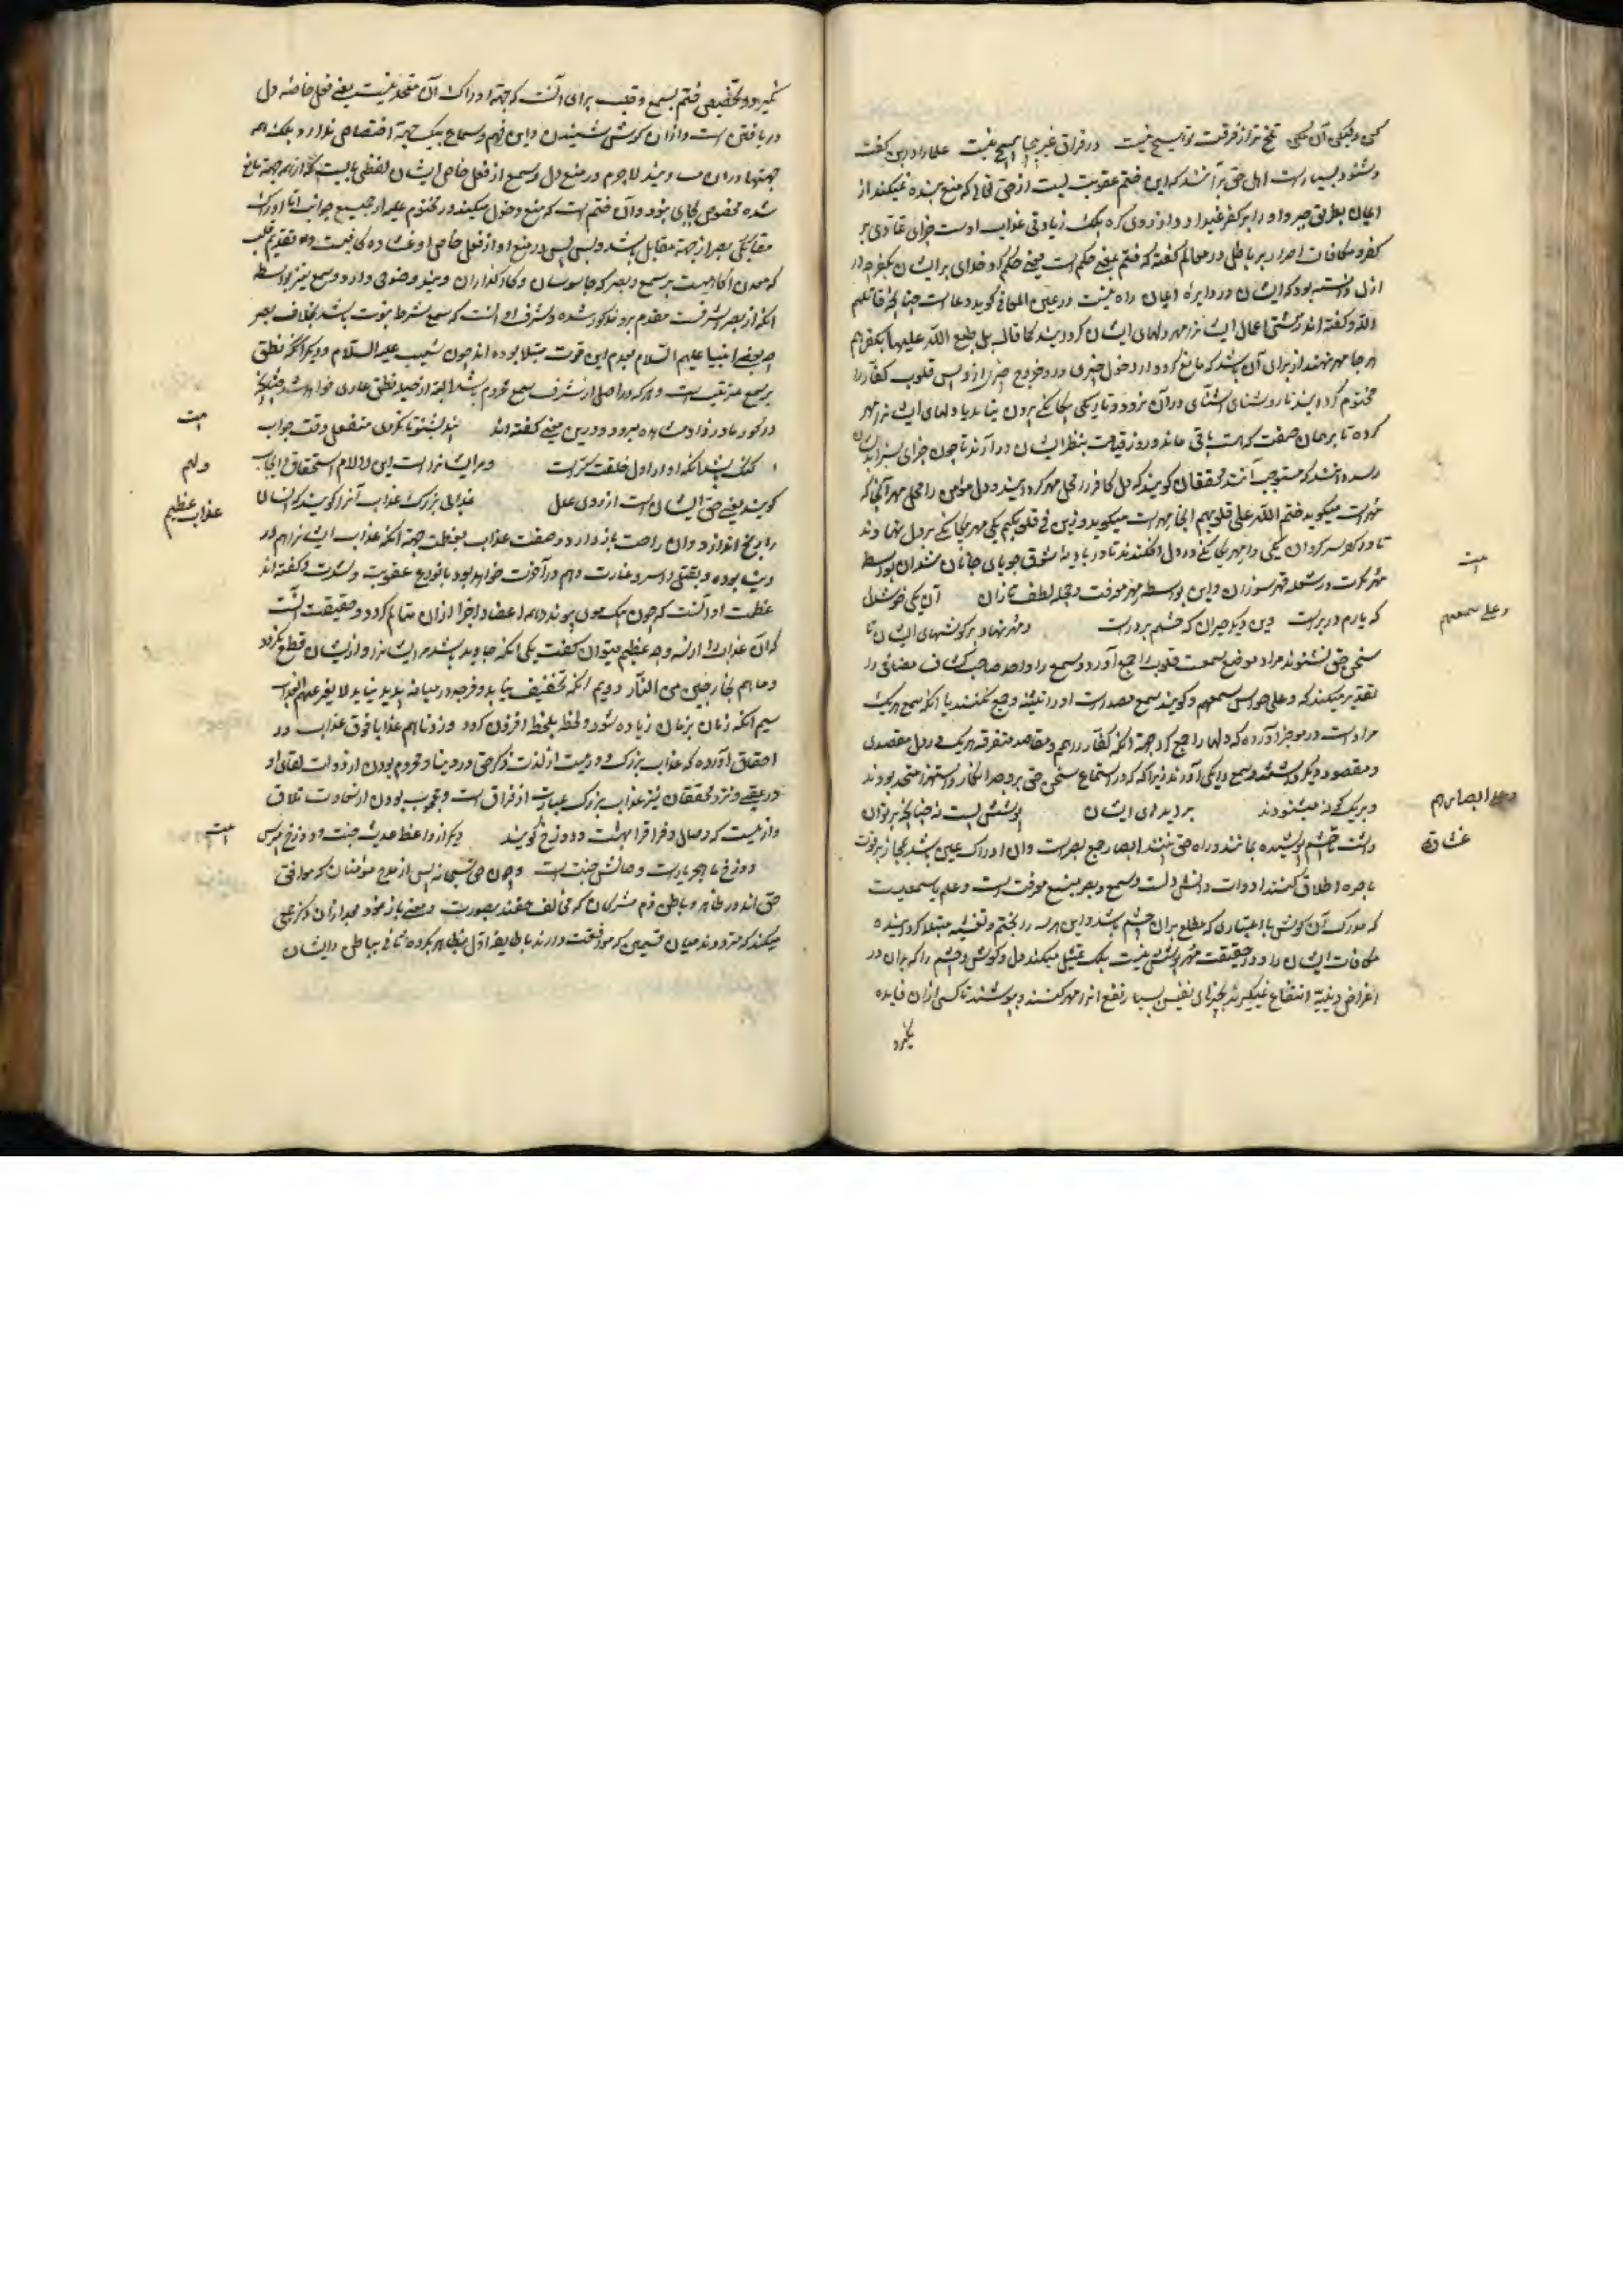 کمی ولیکن آن کمی تلخ تر از فرقت تو هیچ نیست در فراق غیر هیچ نیست علما را درین گفت
و شنود بسیارست اهل حق برآنند که این ختم عقوبت است از حق تعالی که منع بنده نمیکند از
ایمان بطریق جبر و او را بر کفر نمیدارد از روی کره بلک زیادتی عذاب اوست جزای تمادی بر
کفر و مکافات اصرار بر باطل در معالم گفته که ختم بمعنی حکم است یعنی حکم کرد خدای بر ایشان بکفر چه در
ازل دانسته بود که ایشان در دایره ایمان راه نیست در عین المعانی گوید دعا است چنانچه قاتلهم
الله و گفته اند زشتی اعمال ایشانرا مهر دلهای ایشان گردانید کما قال بل طبع الله علیها بکفرهم
هر جا مهر نهند از برای آن باشد که مانع گردد از دخول چیزی درو و خروج چیزی ازو پس قلوب کفار را
مختوم گردانید تا روشنای آشنای در آن نرود و تاریکی بیگانگی بیرون نیاید یا دلهای ایشانرا مهر
کرده تا بر همان صفت که هست باقی ماند و روز قیامت بنظر ایشان درآرند تا چون جزای بسزا بدیشان
رسد دانند که مستوجب آنند محققان گویند که دل کافر را محل مهر گردانید و دل مؤمن را محل مهر آنجا که
مهرست میگوید ختم الله علی قلوبهم اینجا مهرست میگوید و زین فی قلوبکم یکی مهر بیگانگی بر دل نهادند
تا در کوی سرگردان یکی را مهر یگانگی در دل افکندند تا در بادیه شوق جویای جانان شد آن بواسطه
مهر نکرت در شعله قهر سوزان و این بواسطه مهر معرفت در حجله لطف نازان آن یکی خوشدل
که یارم در برست وین دیگر حیران که چشم بر درست و مهر نهاد بر گوشهای ایشان تا
وعلی سمعهم
سخن حق نشنوند مراد موضع سمعست قلوب را جمع آورد و سمع را واحد صاحب کشاف مضافی در
تقدیر میکند که و علی حواس سمعهم و گویند سمع مصدرست او را تثنیه و جمع نکنند یا آنکه سمع هریک
مرادست در موجز آورده که دلها را جمع کرد جهة آنکه کفار را هم و مقاصد متفرقه هریک در دل مقصدی
و مقصود دیگر داشتند و سمع را یکی آورد زیرا که در استماع سخن حق بر وجه انکار و استهزا متحد بودند
و بریک گونه میشنودند بر دیدهای ایشان پوششی است نه چنانچه بر توان
وعلی ابصارهم
غشاوة
داشت تا چشم پوشیده بمانند و راه حق نبینند ابصار جمع بصرست و آن ادراک عین باشد و مجاز بر قوت
باصره اطلاق کنند ادوات دانش دلست و سمع و بصر منبع معرفت است و علم یا سمعیست
که مدرک آن گوش یا اعتباری که مطلع بران چشم باشد و این هر سه را بختم و تغشیه مبتلا گردانیده
مکافات ایشان را و در حقیقت مهر و پوشش نیست بلک تمثیل میکند دل و گوش و چشم را که بران در
اغراض دینیة انتفاع نمیگیرند بچیزهای نفیس بسیار نفع انرا مهر کنند و بپوشند تا کسی ازان فایده
نگیرد
نگیرد و تخصیص ختم بسمع و قلب برای آنست که جهة ادراک آن متحد نیست یعنی فعل خاصه دل
دریافتن است و ازان گوش شنیدن و این فهم و سماع بیک جهة اختصاص ندارد بلکه همه
جهتها دران مساویند لاجرم در منع دل و سمع از فعل خاص ایشان لفظی بایست که از همه جهة مانع
شده مخصوص بجای نبود و آن ختم است که منع دخول میکند در مختوم علیه از جمیع جوانب اما ادراک
بصر از جهة مقابل باشد و بس پس در منع او از فعل خاص او غشاوه کافیست و تقدیم قلب
که معدن آگاهیست بر سمع و بصر که جاسوسان و کارگذاران ویند وضوحی دارد و سمع نیز بواسطه
آنکه از بصر اشرفست مقدم برو مذکور شده و شرف او آنست که سمع شرط نبوت باشد بخلاف بصر
چه بعضی انبیا علیهم السلام بعدم این قوت مبتلا بوده اند چون شعیب علیه السلام و دیگر آنکه نطق
بر سمع مترتبست و هرکه در اصل از شرف سمع محروم باشد البته از حلیه نطق عاری خواهد بود چنانچه
در کور مادرزاد مشاهده میرود و درین معنی گفته اند پند بشنو تا نکردی منفعل وقت جواب
بیت
گنگ باشد آنکه او را در اول خلقت کرست و مر ایشانراست این را لام استحقاق و ایجاب
ولهم
گویند یعنی حق ایشان است از روی عدل عذابی بزرگ عذاب آنرا گویند که انسان
عذاب عظیم
را برنج اندازد و آن راحت باز دارد و صفت عذاب بعظمت جهة آنکه عذاب ایشانرا هم در
دنیا بوده و بقتل و اسر و غارت و هم در آخرت خواهد بود بانواع عقوبت و شدت و گفته اند
عظمت او آنست که چون بیک عضو پیوندد همه اعضا و اجزا ازان متألم گردد و حقیقت آنست
که آن عذاب را از سه وجه عظیم میتوان گفت یکی آنکه جاوید باشد مر ایشانرا و از ایشان قطع نگردد
و ما هم بخارجین من النار دویم آنکه تخفیف نیابد و فرجه در میانه پدید نیاید لا یفتر عنهم العذاب
سیم آنکه زمان بزمان زیاده شود و لحظه بلحظه افزون گردد و زدناهم عذابا فوق عذاب در
احقاق آورده که عذاب بزرگ دوریست از لذت ذکر حق در دنیا و محروم بودن از دولت لقای او
در عقبی و نزد محققان نیز عذاب بزرگ عبارت از فراق است و محجوب بودن از سعادت تلاق
و ازینست که وصال و فراق را بهشت و دوزخ گویند دیگر از واعظ حدیث جنت و دوزخ مپرس
بیت
دوزخ ما هجر یارست و وصالش جنت است و چون حق تعالی پس از مدح مؤمنان که موافق
حق اند در ظاهر و باطن ذم مشرکان که مخالف حقند بصورت و معنی باز نمود بعد ازان ذکر جمعی
میکند که مترددند میان قسمین که موافقت دارند با طایفه اول بظاهر و با گروه ثانی بباطن و ایشان